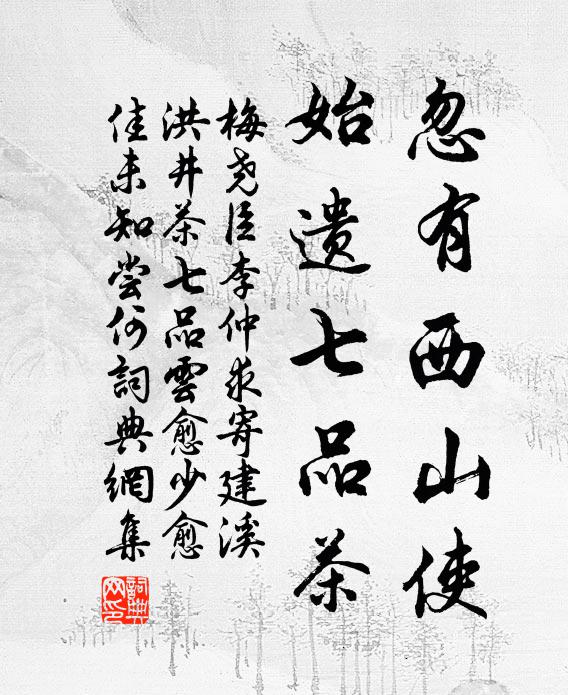 忽有西山使
始遗七品茶
梅尧臣李仲求寄建溪
洪井茶七品雲愈少愈
佳未知尝何詞典網集